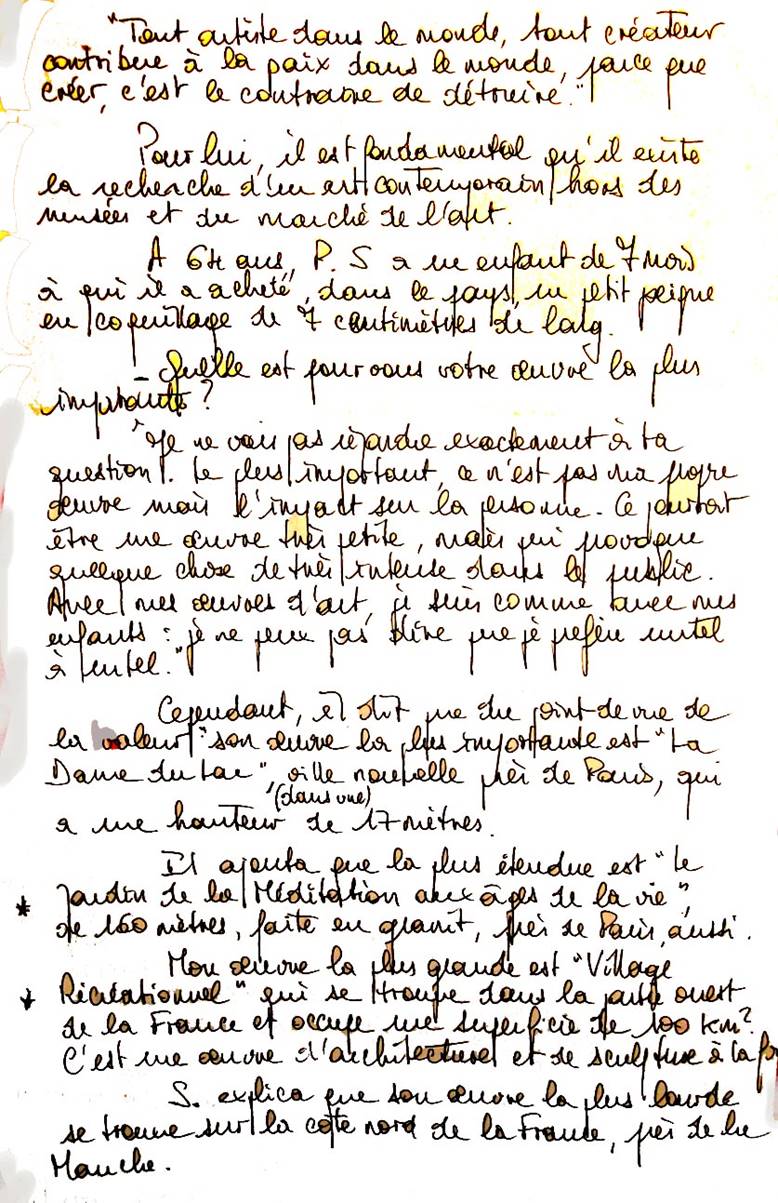 "Tout artiste dans le monde, tout créateur
contribue à la paix dans le monde, parce que
créer, c'est le contraire de détruire."
Pour lui, il est fondamental qu'il existe
la recherche d'un art contemporain hors des
musées et du marché de l'art.
À 64 ans, P. S a un enfant de 7 mois
à qui il a acheté, dans le pays, un petit peigne
en coquillage de 7 centimètres de long.
- Quelle est pour vous votre œuvre la plus
importante ?
"Je ne vais pas répondre exactement à ta
question. Le plus important, ce n'est pas ma propre
œuvre mais l'impact sur la personne. Ce pourrait
être une œuvre très petite, mais qui provoque
quelque chose de très intense dans le public.
Avec mes œuvres d'art, je suis comme avec mes
enfants : je ne peux pas dire que je préfère untel
à untel."
Cependant, il dit que du point de vue de
la valeur "son œuvre la plus importante est "La
Dame du Lac", ville nouvelle près de Paris, qui
(dans une)
a une hauteur de 17 mètres.
Il ajouta que la plus étendue est "Le
* Jardin de la Méditation aux âges de la vie",
de 160 mètres, faite en granit, près de Paris, aussi.
Mon œuvre la plus grande est "Village
* Récréationnel" qui se trouve dans la partie ouest
de la France et occupe une superficie de 100 km².
C'est une œuvre d'architecture et de sculpture à la
S. explica que son œuvre la plus lourde
se trouve sur la côte nord de la France, près de la
Manche.